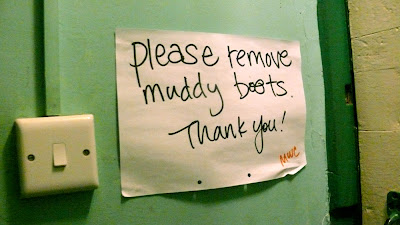 please remove
muddy boots.
Thank you!
MWC